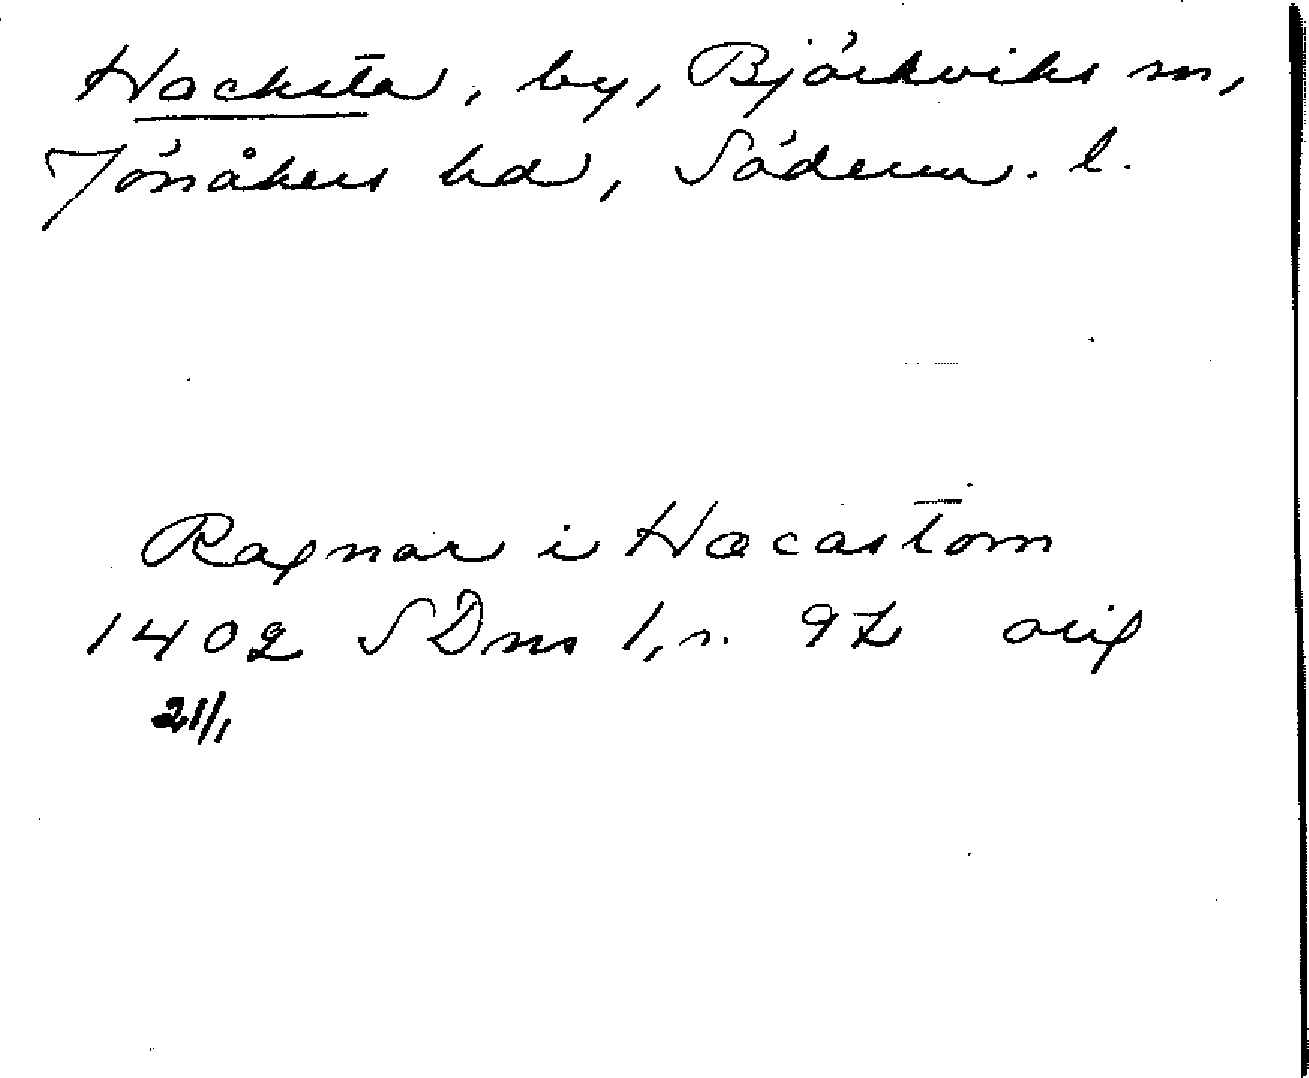 Hacksta, by, Björkviks sn,
Jönåkers hd, Söderm. l.
Ragnar i Hacastom
1402 SDns 1, s. 92 orig
21/1